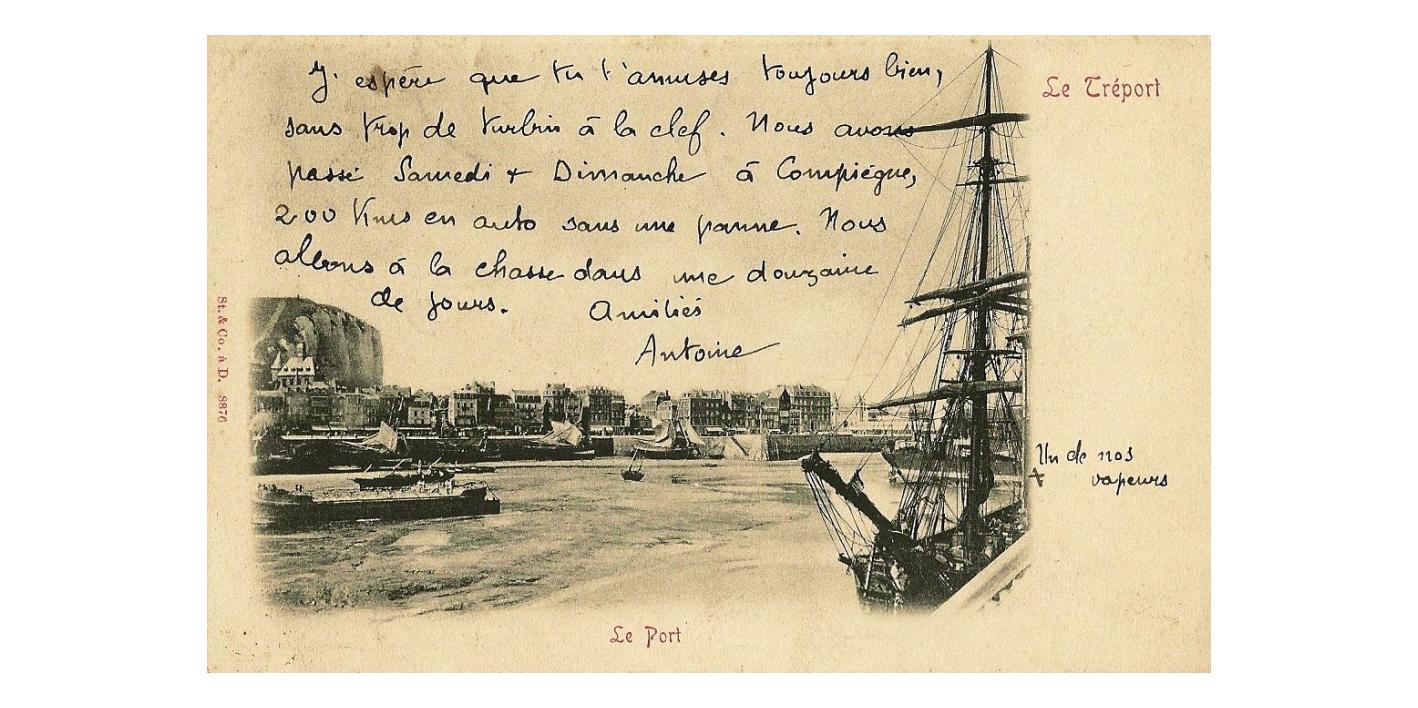 J'espère que tu t'amuses toujours bien,
sans trop de turbin à la clef. Nous avons
passé Samedi + Dimanche à Compiègne,
200 Kms en auto sans une panne. Nous
allons à la chasse dans une douzaine
de jours. Amitiés
Antoine
Le Tréport
Un de nos
+ vapeurs
St. & Co. à D. 8876
Le Port